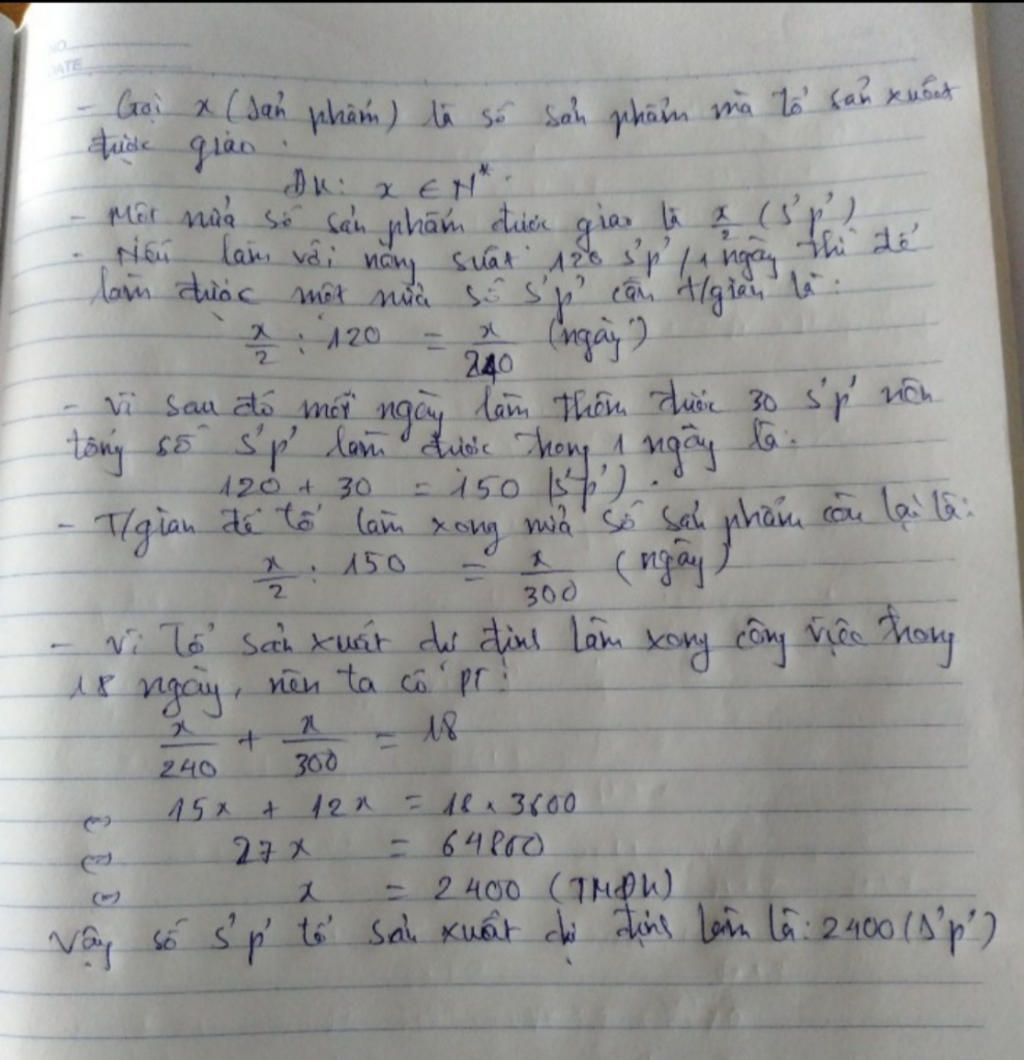 NO.
DATE
- Gọi x (sản phẩm) là số sản phẩm mà tổ sản xuất
được giao.
ĐK: x ∈ N*.
- Một nửa số sản phẩm được giao là x/2 (s'p')
- Nếu làm với năng suất 120 s'p'/1 ngày thì để
làm được một nửa số s'p' cần t/gian là:
x/2 : 120 = x/240 (ngày)
- Vì sau đó mỗi ngày làm thêm được 30 s'p' nên
tổng số s'p' làm được trong 1 ngày là:
120 + 30 = 150 (s'p').
- T/gian để tổ làm xong nửa số sản phẩm còn lại là:
x/2 : 150 = x/300 (ngày)
- Vì tổ sản xuất dự định làm xong công việc trong
18 ngày, nên ta có pt:
x/240 + x/300 = 18
(=) 15x + 12x = 18 x 3600
(=) 27x = 64800
(=) x = 2400 (TMĐK)
Vậy số s'p' tổ sản xuất dự định làm là: 2400 (s'p')